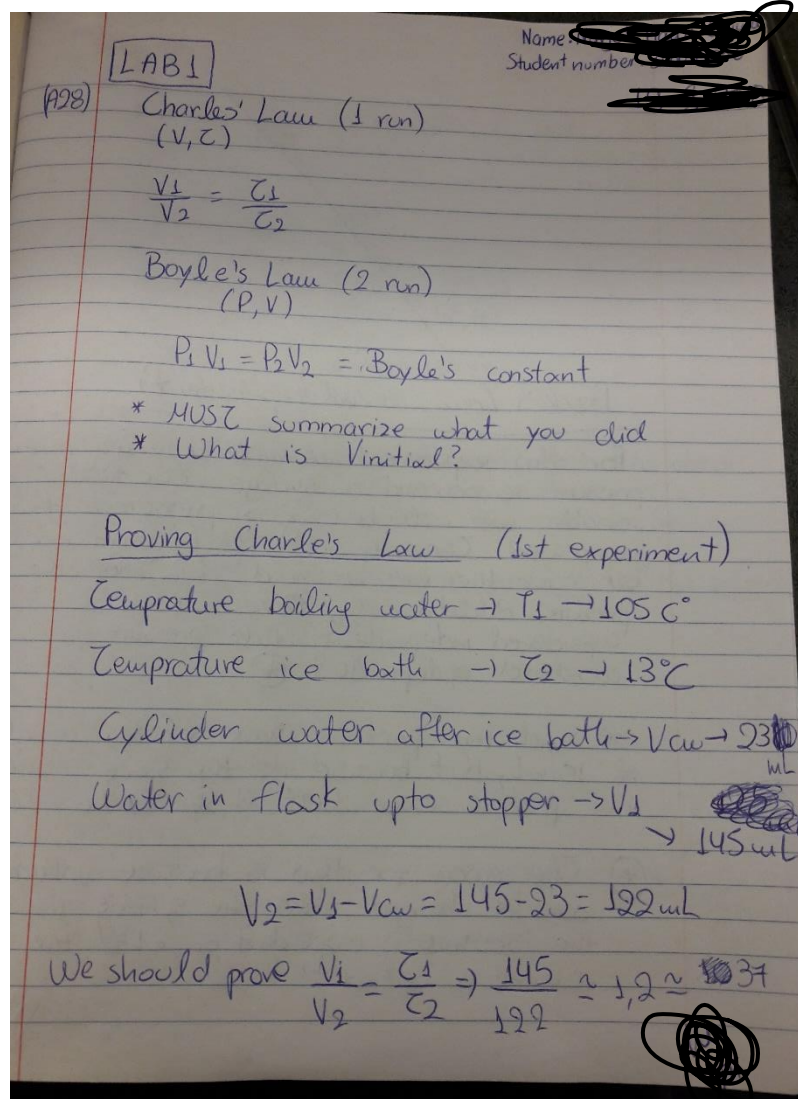 Name:
Student number
LAB1
(A28)
Charles' Law (1 run)
(V, T)
V1/V2 = T1/T2
Boyle's Law (2 run)
(P, V)
P1 V1 = P2 V2 = Boyle's constant
* MUST summarize what you did
* What is Vinitial?
Proving Charle's Law (1st experiment)
Temprature boiling water → T1 → 105 C°
Temprature ice bath → T2 → 13°C
Cylinder water after ice bath → Vcw → 23
mL
Water in flask upto stopper → V1
→ 145 mL
V2 = V1 - Vcw = 145 - 23 = 122 mL
We should prove V1/V2 = T1/T2 ⇒ 145/122 ≈ 1,2 ≈